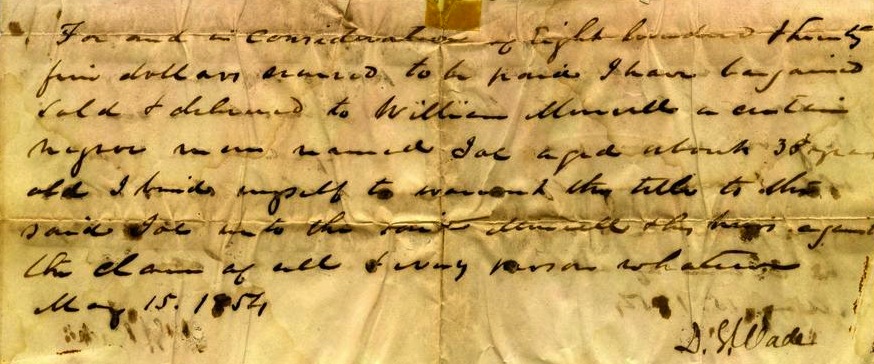 For and in consideration of Eight hundred & twenty
five dollars secured to be paid I have bargained
sold & delivered to William a certain
negroe man named Joe aged about 38 years
old I bind myself to warrant the title to the
said Joe unto the said & his heirs against
the claim of all & every person whatever
May 15. 1854
D. Wade